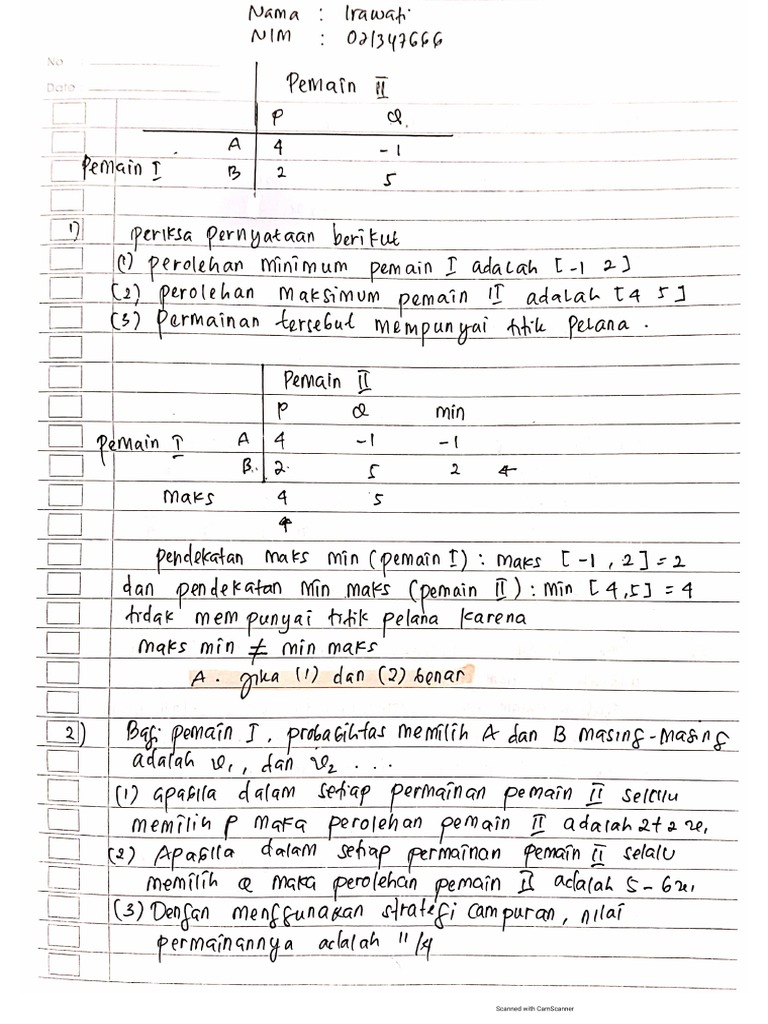 Nama : Irawati
NIM : 021347666
No
Date
Pemain II
P Q.
A 4 -1
Pemain I
B 2 5
1) periksa pernyataan berikut
(1) perolehan minimum pemain I adalah [-1 2]
(2) perolehan maksimum pemain II adalah [4 5]
(3) Permainan tersebut mempunyai titik pelana.
Pemain II
P Q min
Pemain I A 4 -1 -1
B. 2 5 2 ←
Maks 4 5
↑
pendekatan maks min (pemain I) : maks [-1, 2] = 2
dan pendekatan Min maks (pemain II) : Min [4,5] = 4
tidak mempunyai titik pelana karena
maks min ≠ min maks
A. jika (1) dan (2) benar
2) Bagi pemain I, probabilitas memilih A dan B masing-masing
adalah x₁, dan x₂ ...
(1) apabila dalam setiap permainan pemain II selalu
memilih P maka perolehan pemain II adalah 2+2x₁
(2) Apabila dalam setiap permainan pemain II selalu
memilih Q maka perolehan pemain II adalah 5-6x₁
(3) Dengan menggunakan strategi campuran, nilai
permainannya adalah 11/4
Scanned with CamScanner